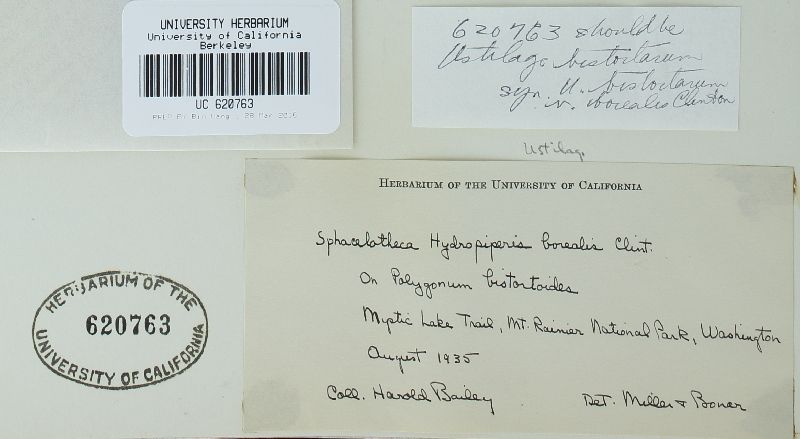 UNIVERSITY HERBARIUM
University of California
Berkeley
UC 620763
620763 should be
Ustilago bistortarum
syn. U. bistortarum
v. borealis Clinton
Ustilag.
HERBARIUM OF THE UNIVERSITY OF CALIFORNIA
Sphacelotheca Hydropiperis borealis Clint.
On Polygonum bistortoides
Mystic Lake Trail, Mt. Rainier National Park, Washington
August 1935
Coll. Harold Bailey Det. Miller & Bonar
HERBARIUM OF THE
620763
UNIVERSITY OF CALIFORNIA